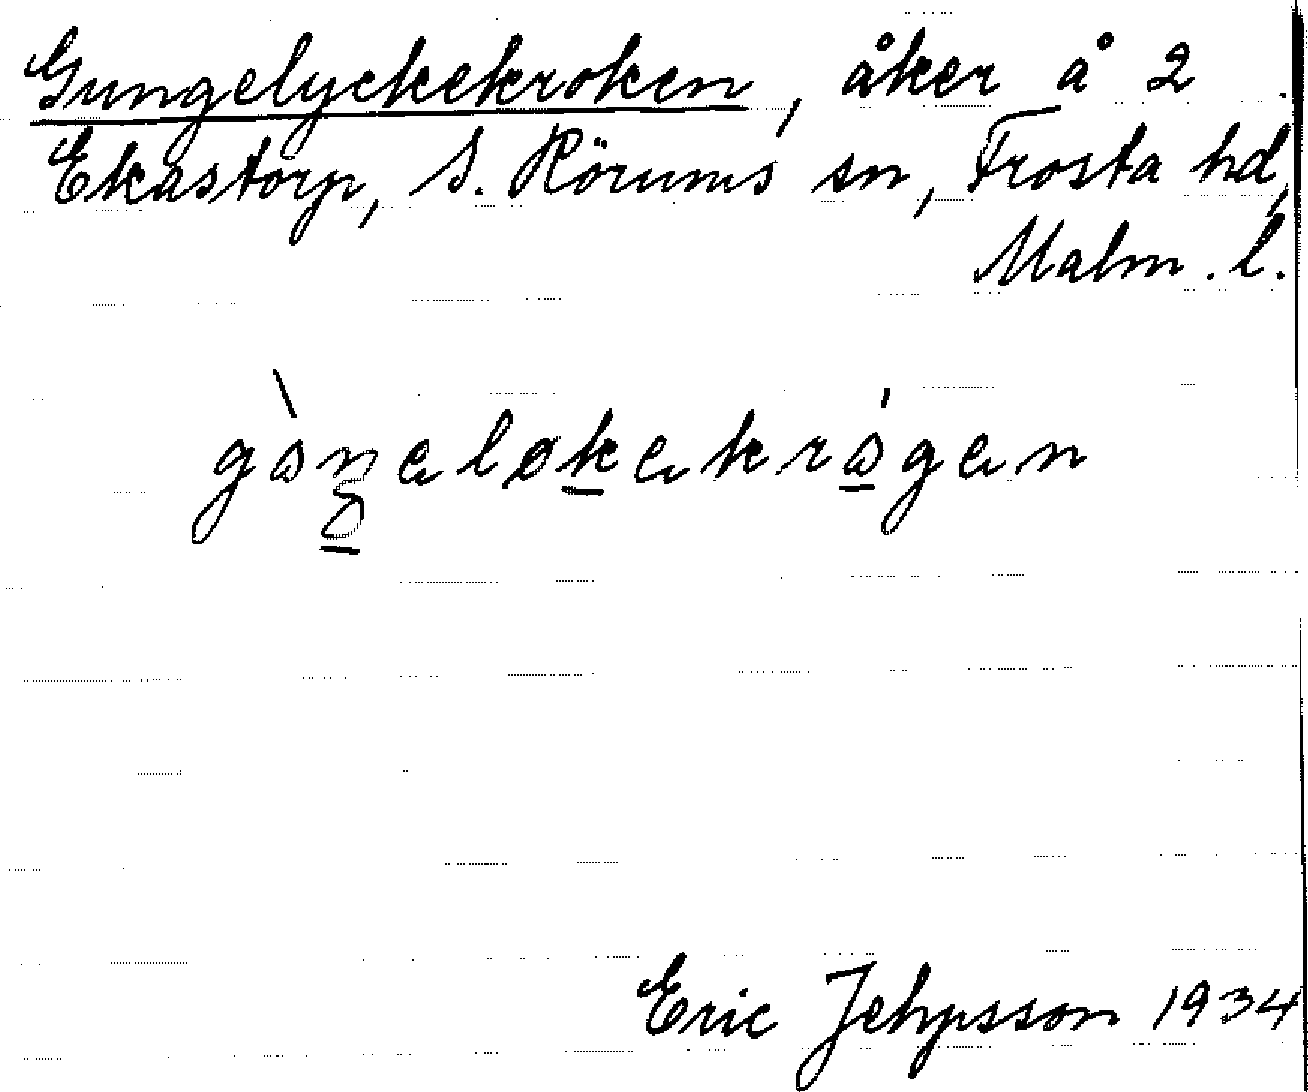 Gungelyckekroken, åker å 2
Ekastorp, S. Rörums sn, Frosta hd,
Malm. l.
Eric Jehpsson 1934